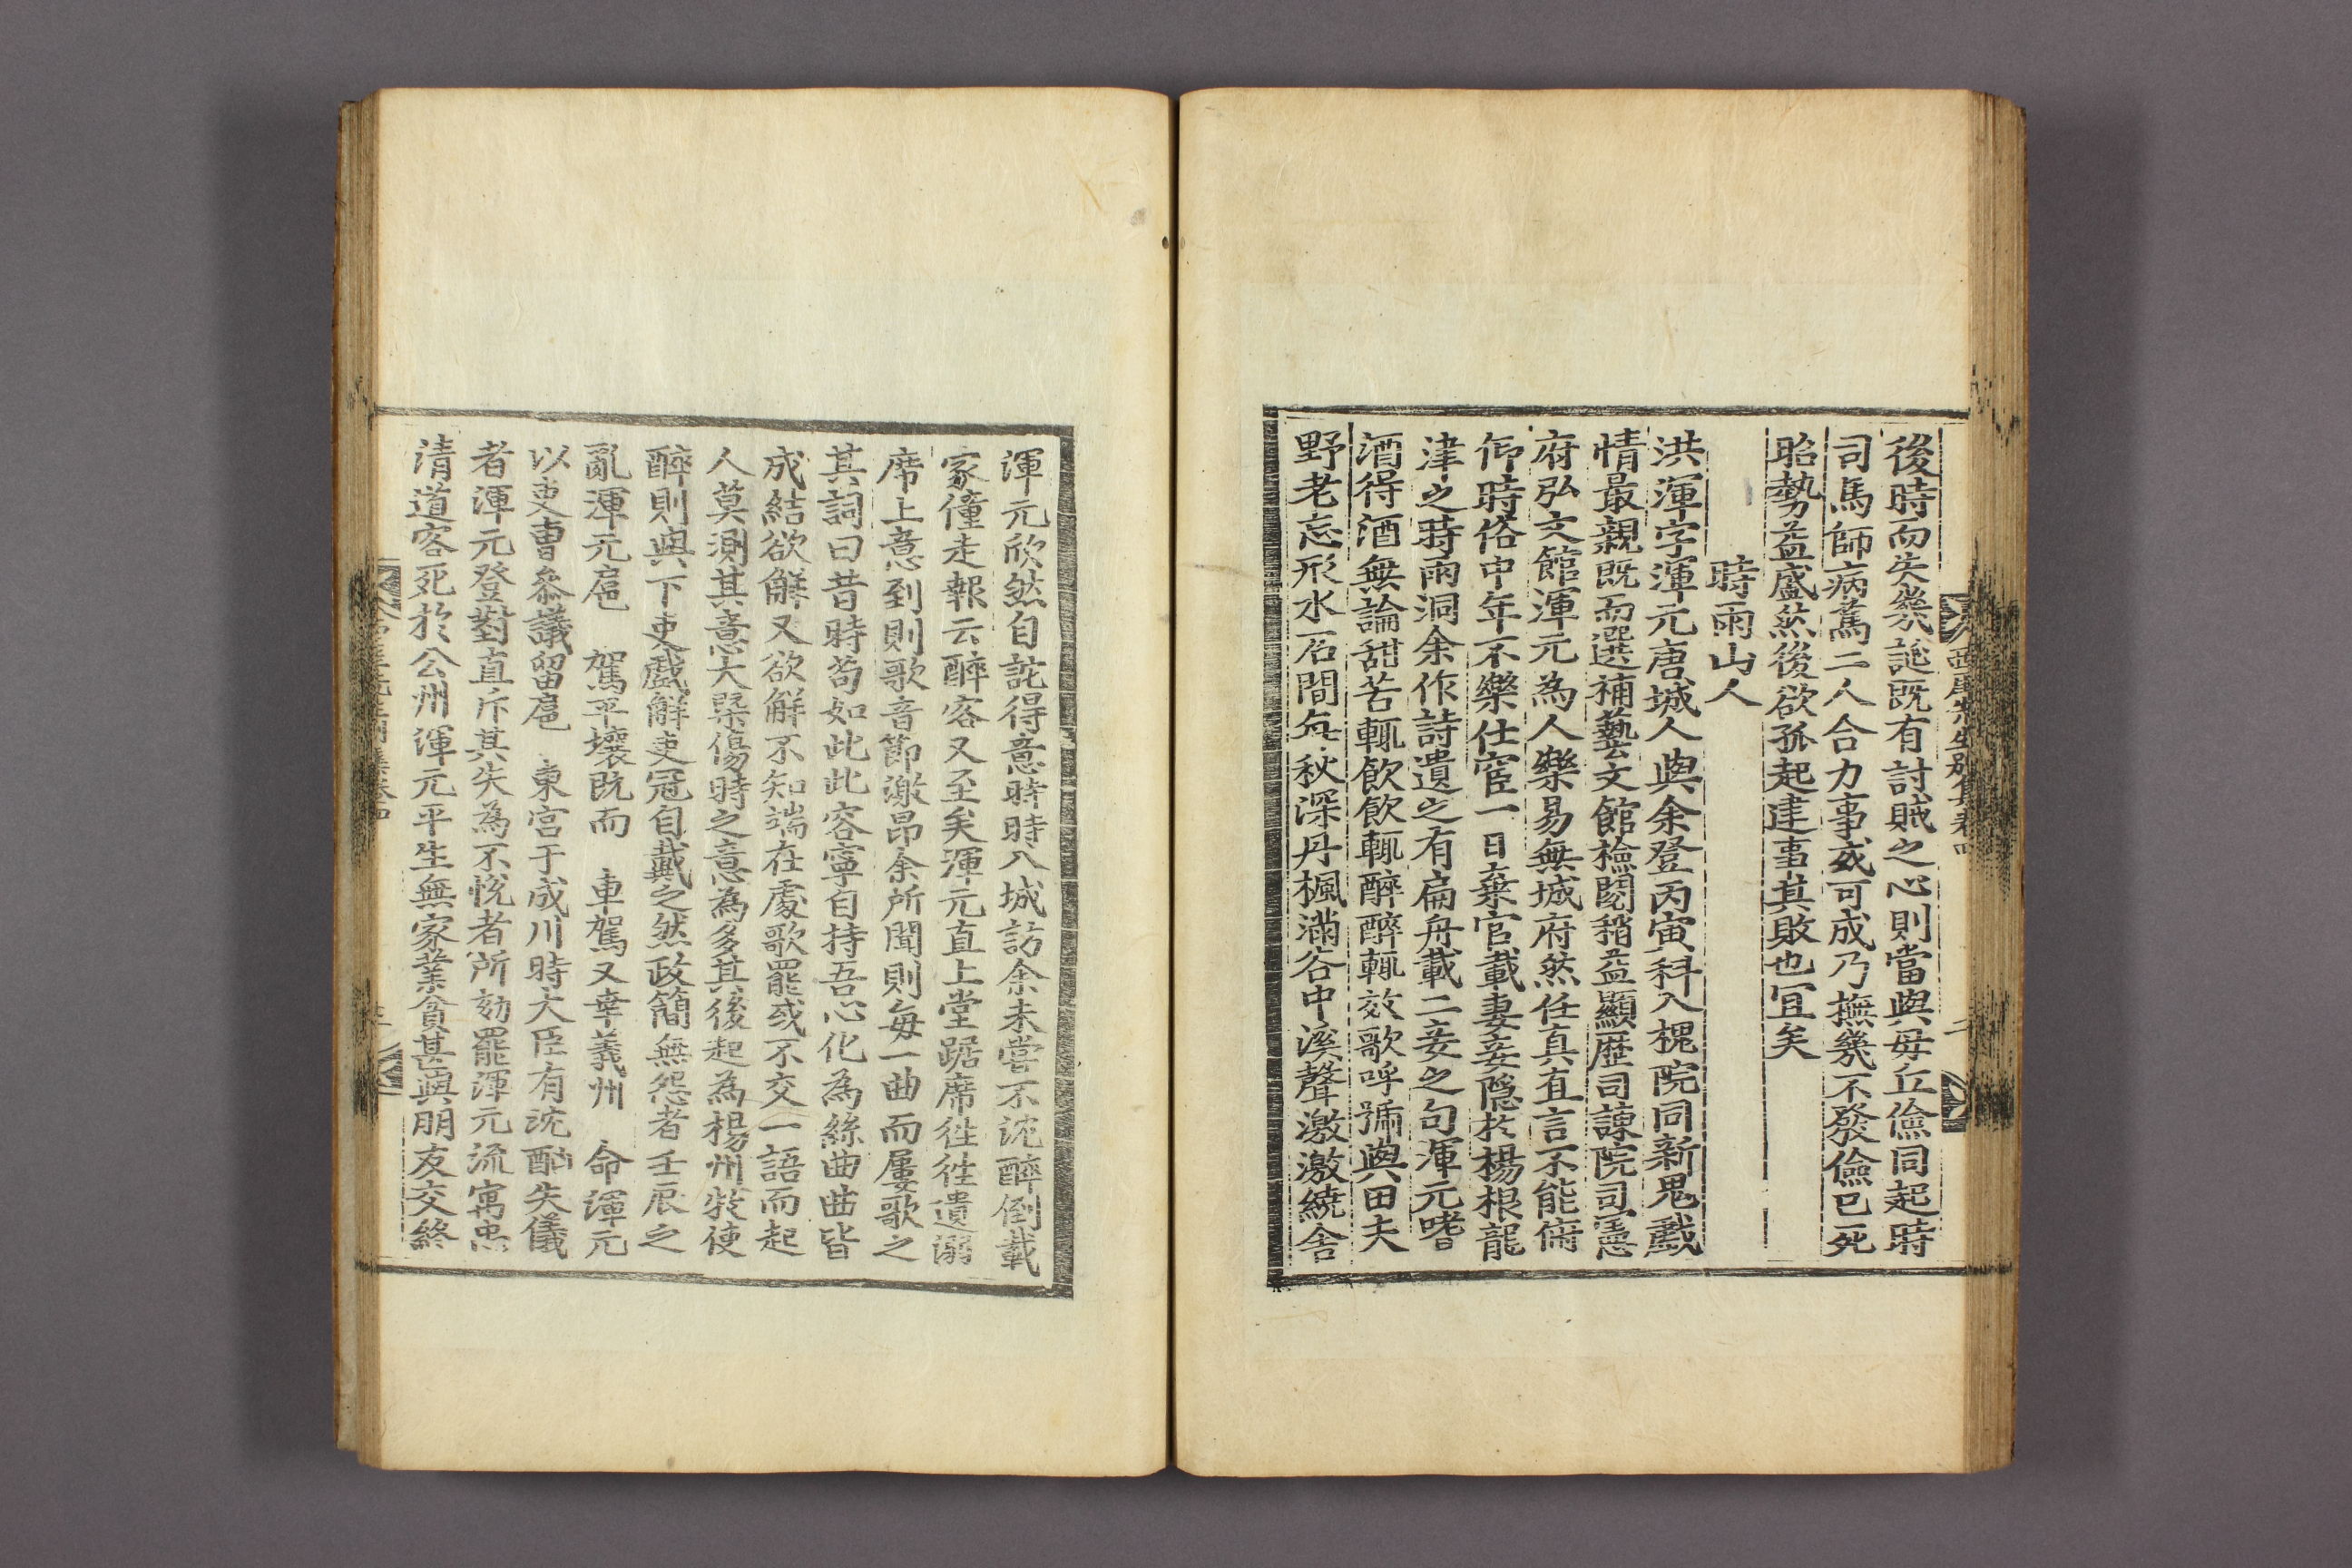 後時而失幾誕旣有討賊之心則當與毋丘儉同起時
司馬師病篤二人合力事或可成乃撫幾不發儉已死
昭勢益盛然後欲孤起建事其敗也宜矣
時雨山人
洪渾字渾元唐城人與余登丙寅科入槐院同新鬼戱
情最親既而選補藝文館檢閱稍益顯歷司諫院司憲
府弘文館渾元為人樂易無城府然任真直言不能俯
仰時俗中年不樂仕宦一日棄官載妻妾隱於楊根龍
津之時雨洞余作詩遺之有扁舟載二妾之句渾元咾
酒得酒無論甜苦輒飮飮輒醉醉輒效歌呼號與田夫
野老忘形水石間每秋深丹楓滿谷中溪聲激激繞舎
渾元欣然自託得意時時入城訪余未嘗不沈醉倒載
家僮走報云醉客又至矣渾元直上堂踞席徃徃遺溺
席上意到則歌音節激昂余所聞則每一曲而屢歌之
其詞曰昔時苟如此此容寧自持吾心化為絲曲曲皆
成結欲解又欲解不知端在處歌罷或不交一語而起
人莫測其意大槩傷時之意為多其後起為楊州牧使
醉則與下吏戱解吏冠自戴之然政簡無怨者壬辰之
亂渾元扈 駕平壤既而 車駕又幸義州 命渾元
以吏曹參議留扈 東宮于成川時大臣有沈酗失儀
者渾元登對直斥其失為不悅者所劾罷渾元流寓忠
清道客死於公州渾元平生無家業貧甚與朋友交終
西厓先生別集卷四